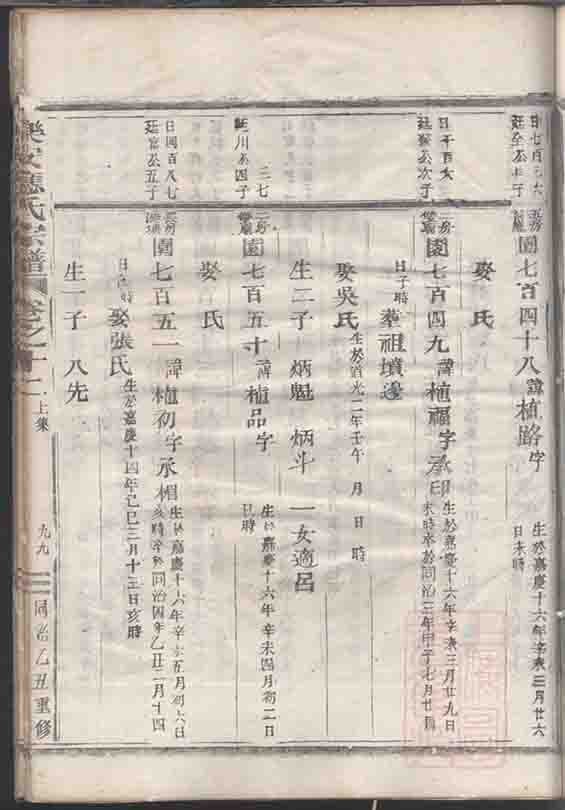 日七百三六
廷全公長子
園七百四十八 諱植路 字 生於嘉慶十六年辛未三月廿六
日未時
娶 氏
日千百
廷 公次子
二房
園七百四九 諱植福 字承印 生於嘉慶十六年辛未三月廿九日
未時卒於同治三年甲子七月廿
日子時 葬祖墳邊
娶吳氏 生於道光二年壬午 月 日 時
生二子 炳魁 炳斗 一女適呂
三七
廷川公四子
二房
園七百五十 諱植品 字 生於嘉慶十六年辛未四月初二日
巳時
娶 氏
日國百八七
廷富公五子
園七百五一 諱植初 字承楣 生於嘉慶十六年辛未五月初六日
亥時卒於同治四年乙丑二月十四
日 時 娶張氏 生於嘉慶十四年己巳三月十三日亥時
生一子 八先
樂安應氏宗譜 卷之十二 上集 九九 同治乙丑重修